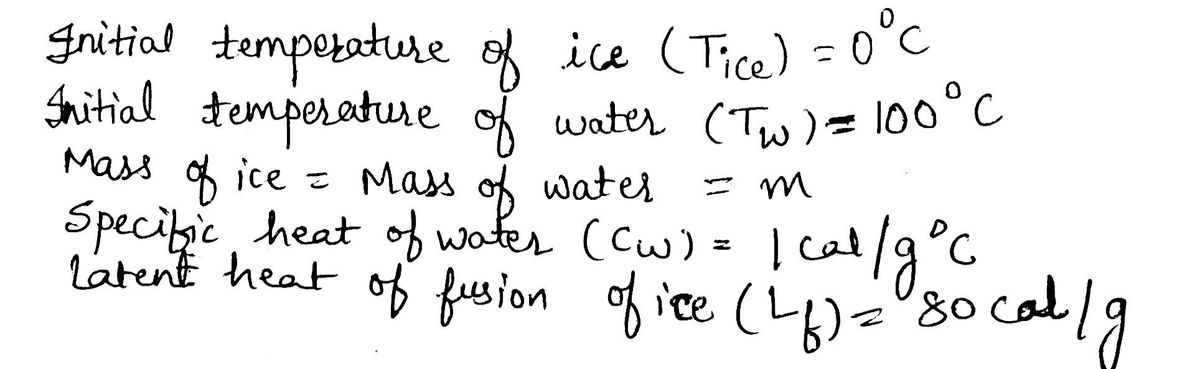 Initial temperature of ice (Tice) = 0°C
Initial temperature of water (Tw) = 100°C
Mass of ice = Mass of water = m
Specific heat of water (Cw) = 1 cal/g°C
Latent heat of fusion of ice (Lf) = 80 cal/g